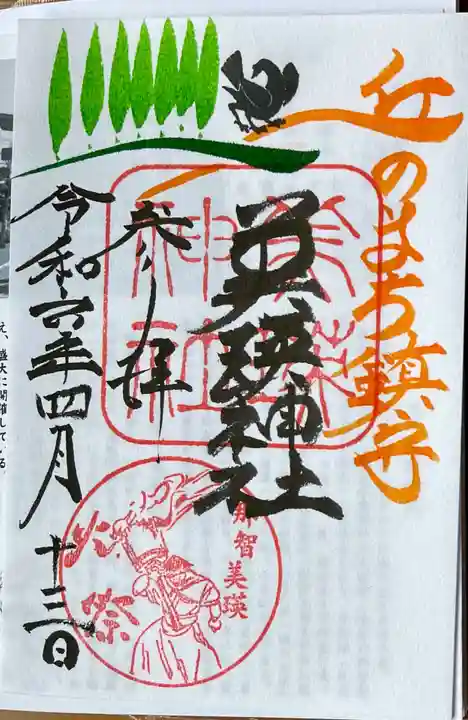 丘のまち鎮守
美瑛神社
参拝
令和六年四月十三日
美瑛神社
那智美瑛
火祭
え、盛大に開催している。